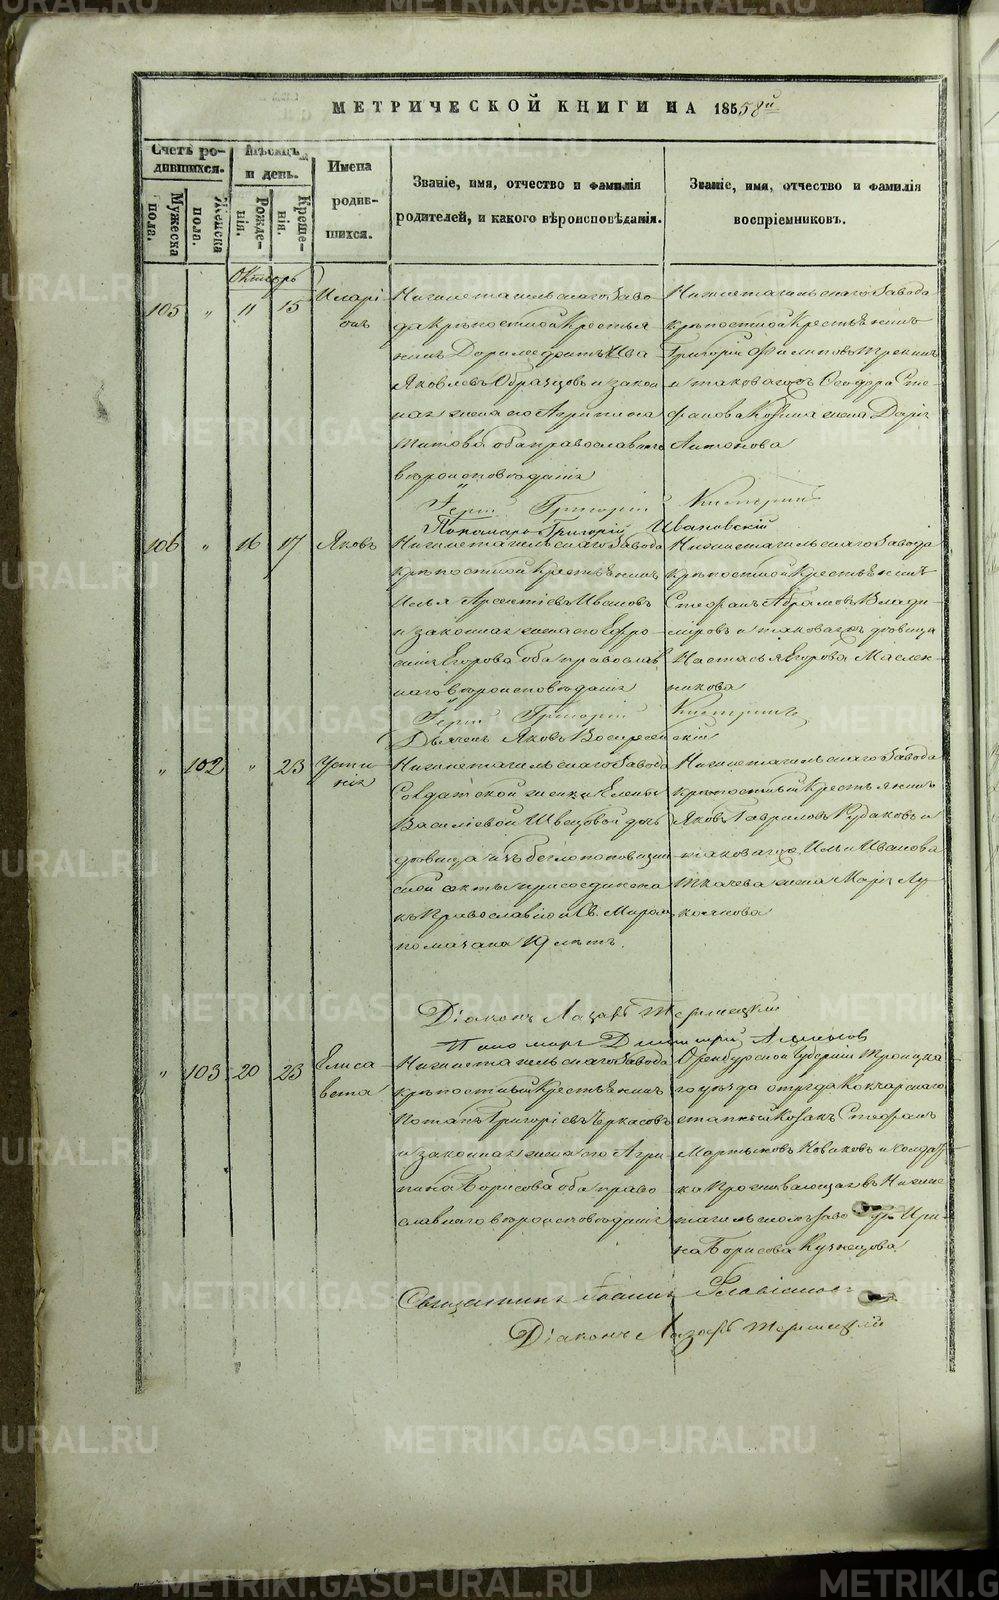 МЕТРИЧЕСКОЙ КНИГИ НА 1858й
Счетъ ро-
дившихся.
Мужеска
пола.
Женска
пола.
Мѣсяцъ
и день.
Рожде-
нія.
Креще-
нія.
Имена
родив-
шихся.
Званіе, имя, отчество и фамилія
родителей, и какого вѣроисповѣданія.
Званіе, имя, отчество и фамилія
воспріемниковъ.
Октябрь
105 " 11 15
Иларі
онъ
Нижнетагильскаго Заво
да крѣпостной крестья
нинъ
Яковлевъ Образцовъ и закон
ная жена его Агрипина
Титова оба православнаго
вѣроисповѣданія
Нижнетагильскаго Завода
крѣпостной крестьянинъ
Григорій Филиповъ
и таковагожъ Ѳеодора Сте-
фанова Козина жена Дарія
Антонова
Іерей Григорій
Пономарь Григорій Ивановскій
106 " 16 17
Яковъ
Нижнетагильскаго Завода
крѣпостной крестьянинъ
Илья Арсентіевъ Ивановъ
и законная жена его Ефро-
синія Егорова оба православ
наго вѣроисповѣданія
Нижнетагильскаго Завода
крѣпостной крестьянинъ
Стефанъ Абрамовъ Влади-
міровъ и таковагожъ вдовица
Настасья Егорова Маслен-
никова
Іерей Григорій
Дьячекъ Яковъ Воскресенскій
" 102 " 23
Усти
нія
Нижнетагильскаго Завода
Солдатской женки Елены
Василіевой Швецовой дочь
вдовица изъ беглопоповщин
ской секты присоединена
къ Православной Св. Миром
помазана 19 лѣтъ.
Нижнетагильскаго Завода
крѣпостный крестьянинъ
Яковъ Гавриловъ Рудаковъ и
таковагожъ Ильи Иванова
Ткачева жена Марія Лу
коянова
Діаконъ Лазарь
Пономарь Димитрій
" 103 20 23
Елиса
вета
Нижнетагильскаго Завода
крѣпостный крестьянинъ
Потапъ Григоріевъ Черкасовъ
и законная жена его Агри
пина Борисова оба право
славнаго вѣроисповѣданія
Оренбурской Губерніи Троицка
го уѣзда отряда Кочкарскаго
станный Козакъ Стефанъ
Мартыновъ Новаковъ и солдат
ка проживающая въ Нижне
тагильскомъ заводѣ Ири-
на Борисова Кузнецова
Священникъ Іоаннъ
Діаконъ Лазарь